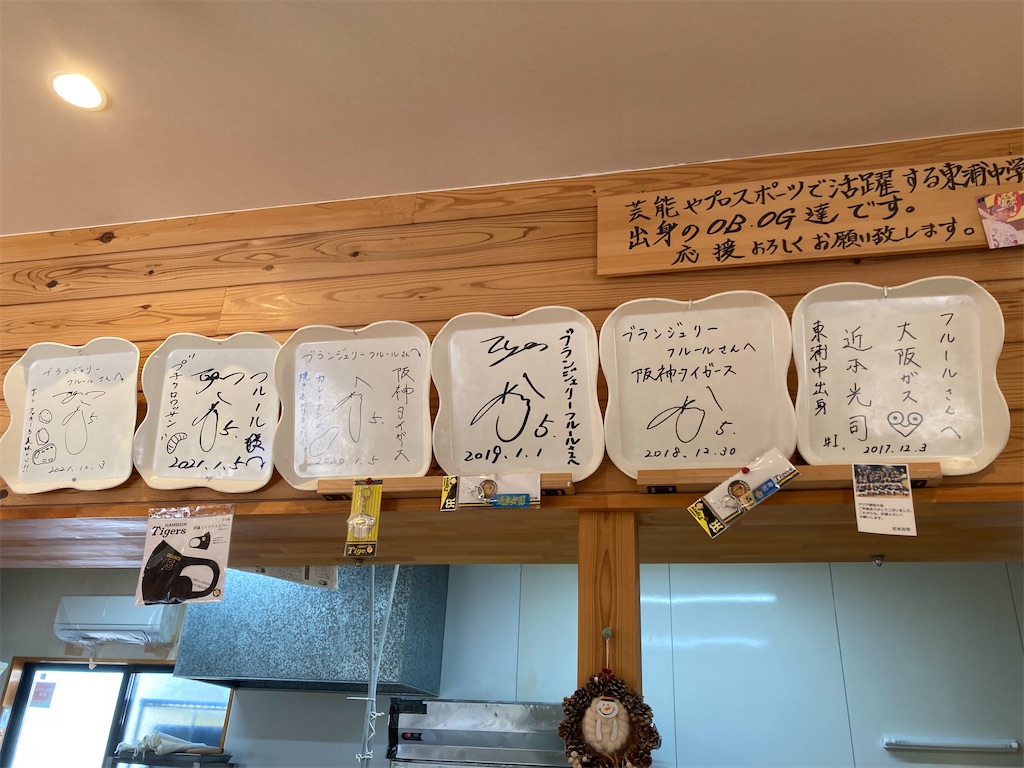 芸能やプロスポーツで活躍する東浦中学
出身のOB.OG達です。
応援よろしくお願い致します。
ブランジェリー
フルールさんへ
2021.12.3
フルール様へ
プチクロワッサン
5.
2021.1.5
ブランジェリーフルールさんへ
阪神タイガース
5.
2020.1.5
ブランジェリーフルールさんへ
5.
2019.1.1
ブランジェリー
フルールさんへ
阪神タイガース
5.
2018.12.30
フルールさんへ
大阪ガス
近本光司
東浦中出身
#1.
2017.12.3
HANSHIN
Tigers
Tigers